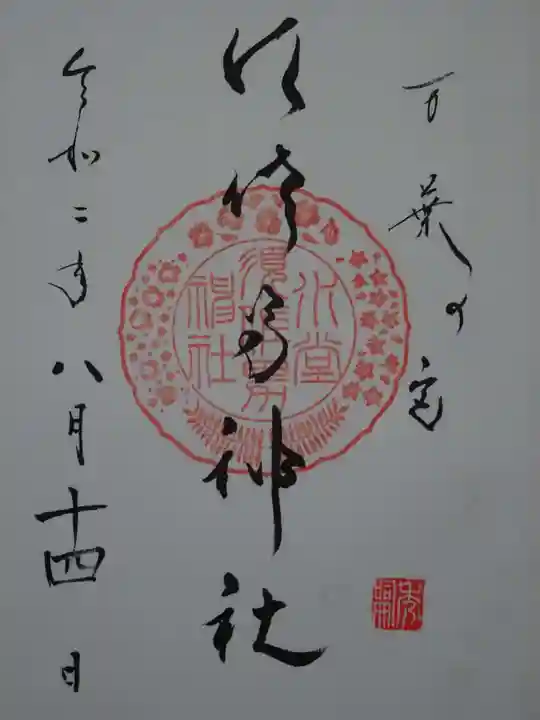 万葉の
水堂
須佐男神社
須佐男
神社
令和二年八月十四日